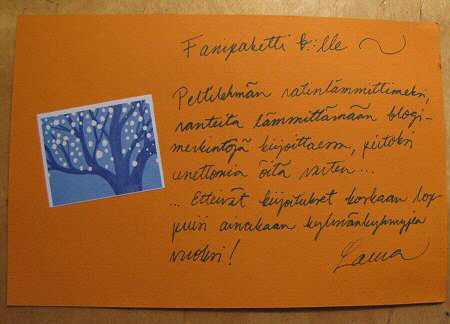 Fanipaketti k:lle
Peltilehmän ratinlämmittimeksi,
ranteita lämmittämään blogi-
merkintöjä kirjoittaessa, piristoksi
unettomia öitä varten...
... Etteivät kirjoitukset koskaan lop-
puisi ainakaan kylmänkyhmyjen
vuoksi!
Laura